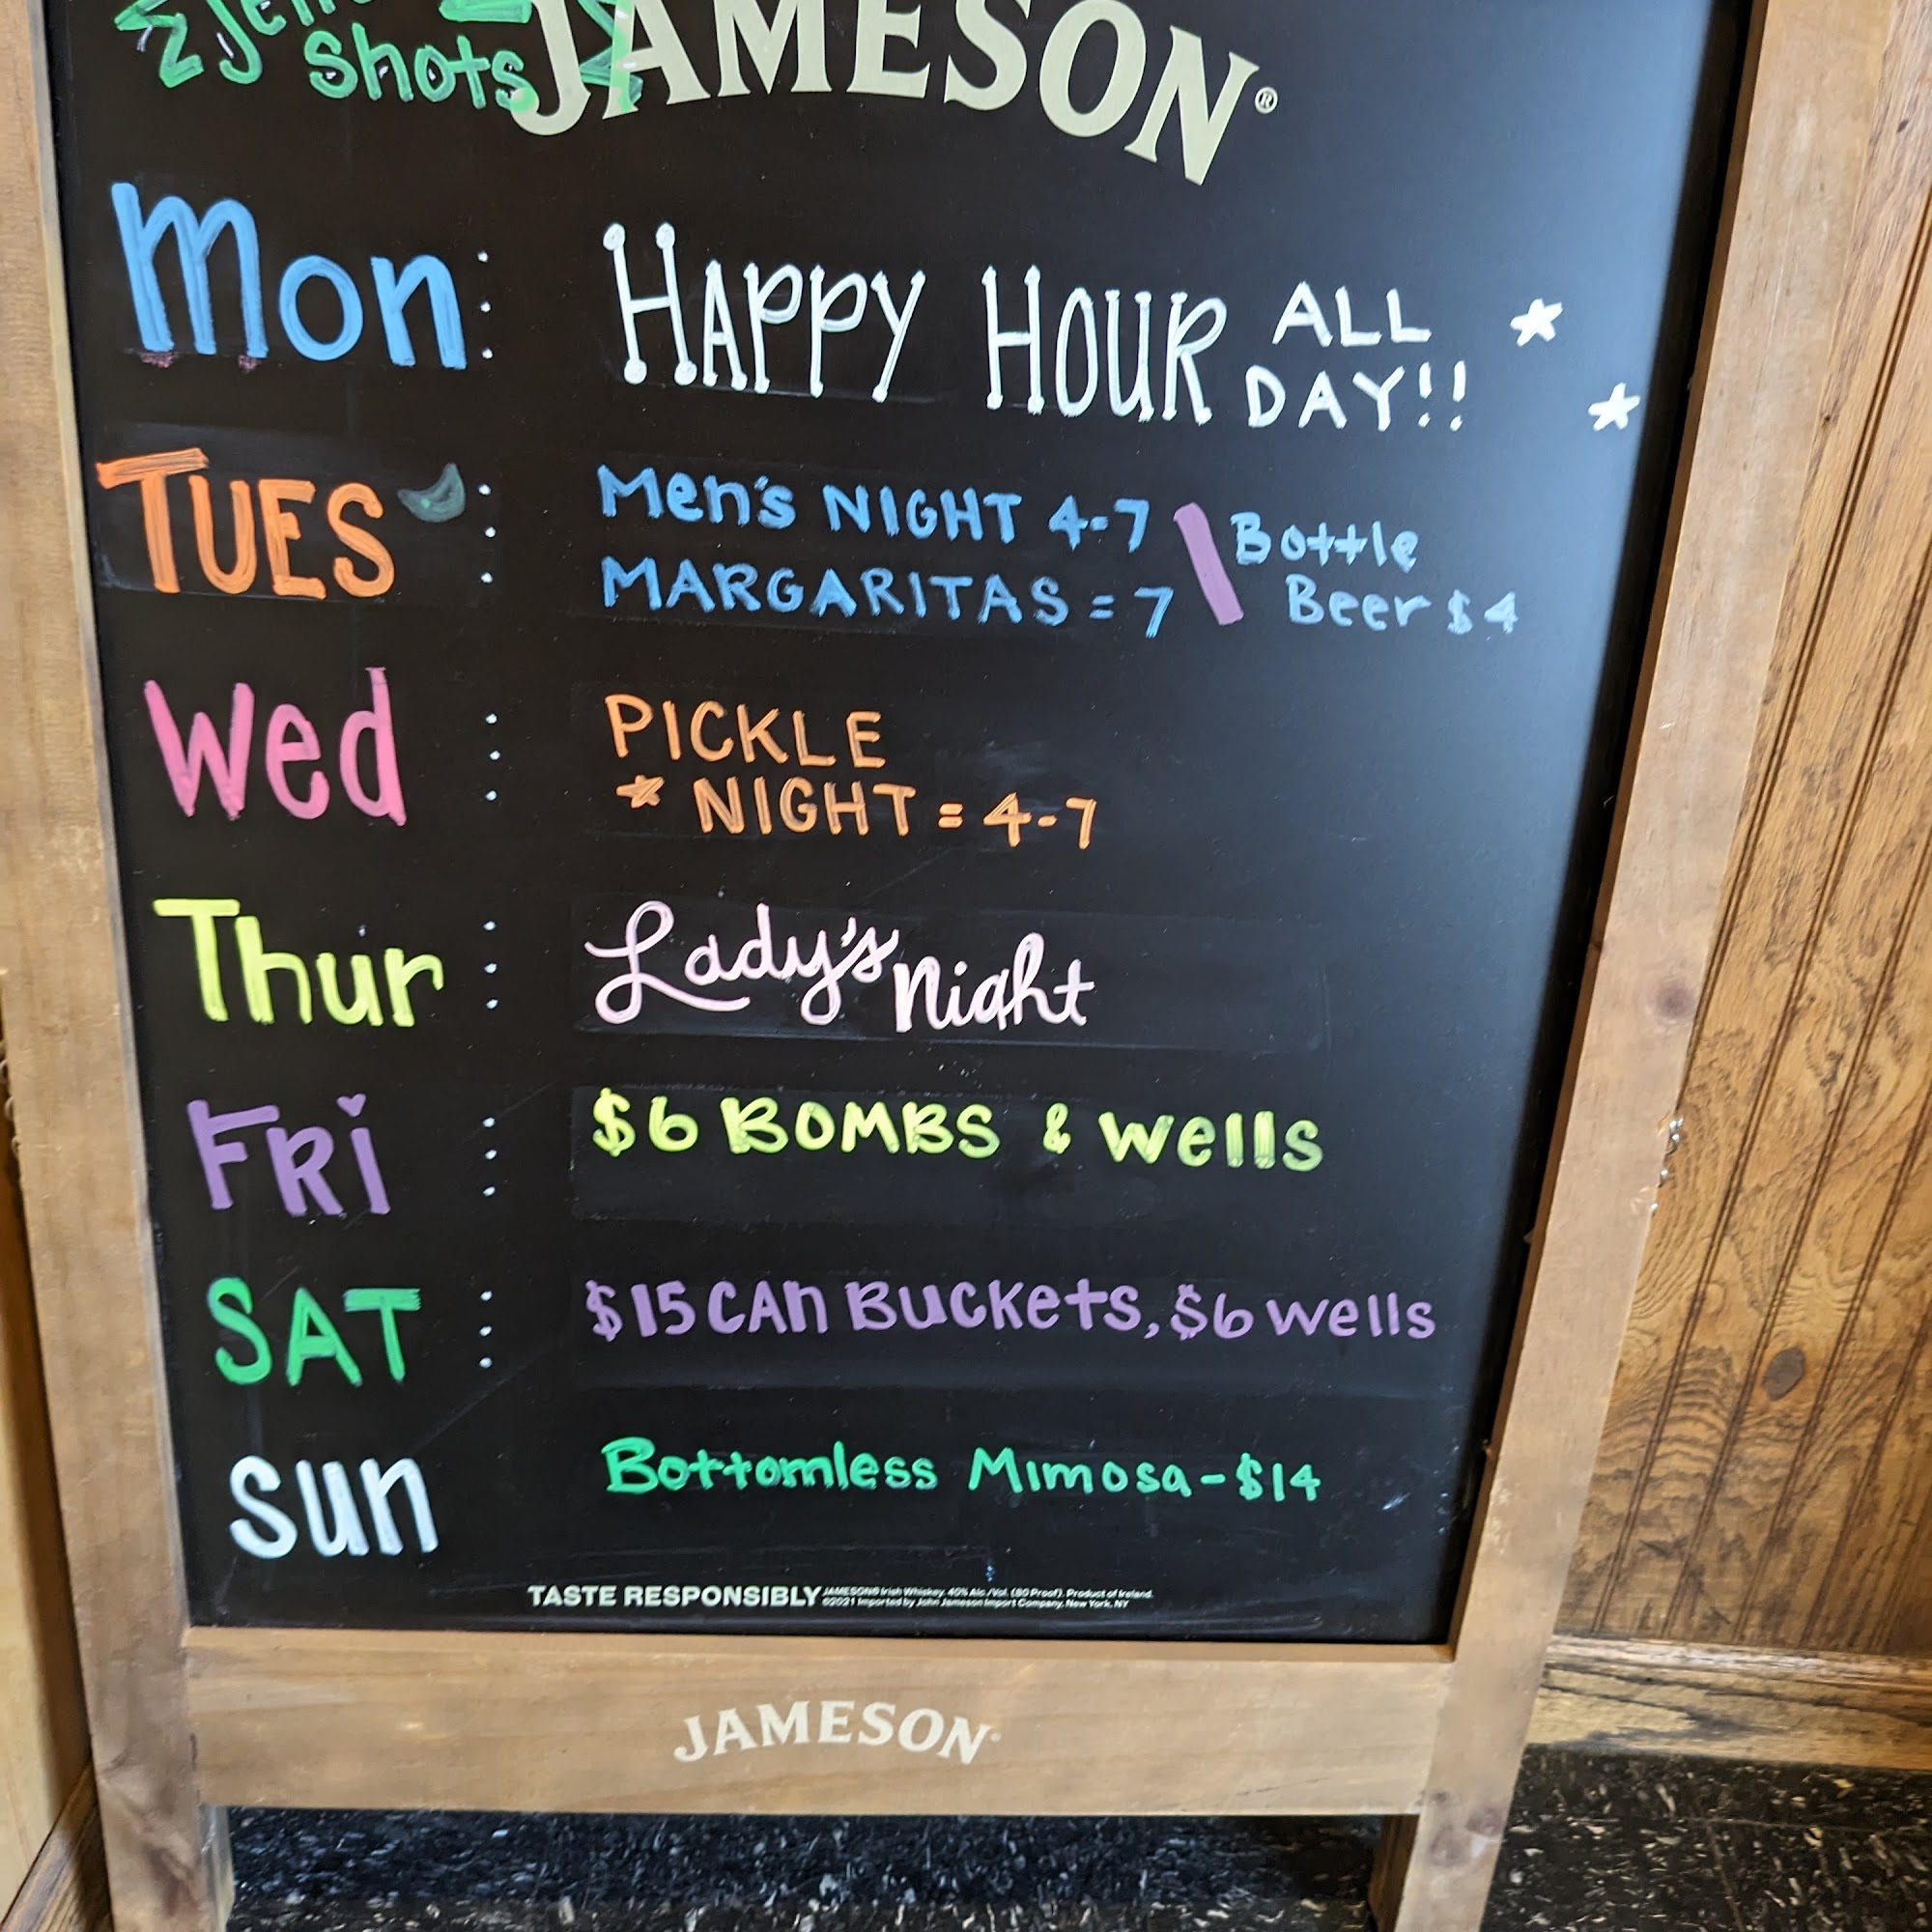 Shots
JAMESON®
Mon: HAPPY HOUR ALL
DAY!!
TUES : Men's NIGHT 4-7 Bottle
MARGARITAS = 7 Beer $4
Wed : PICKLE
* NIGHT = 4-7
Thur : Lady's Night
FRi : $6 BOMBS & Wells
SAT : $15 CAn Buckets, $6 wells
Sun Bottomless Mimosa - $14
TASTE RESPONSIBLY JAMESON® Irish Whiskey. 40% Alc./Vol. (80 Proof). Product of Ireland.
©2021 Imported by John Jameson Import Company, New York, NY
JAMESON